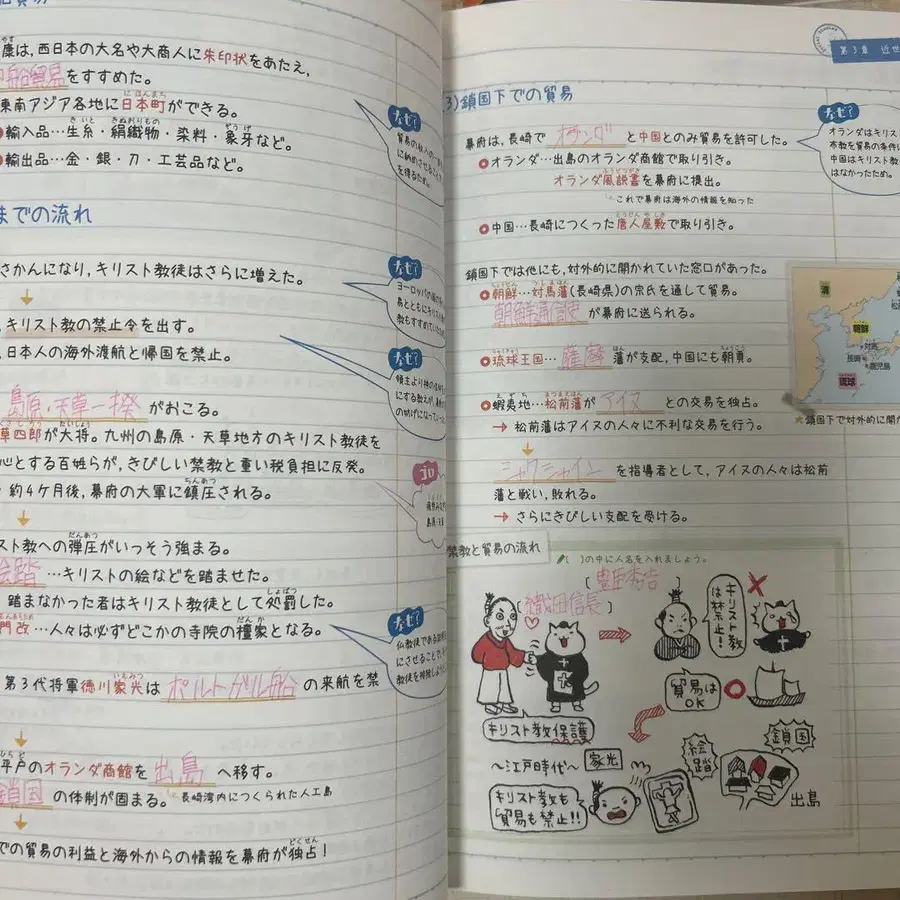 康は,西日本の大名や大商人に朱印状をあたえ,
船貿易をすすめた。
東南アジア各地に日本町ができる。
輸入品…生糸・絹織物・染料・象牙など。
輸出品…金・銀・刀・工芸品など。
なぜ?
までの流れ
さかんになり,キリスト教徒はさらに増えた。
なぜ?
キリスト教の禁止令を出す。
日本人の海外渡航と帰国を禁止。
なぜ?
島原・天草一揆 がおこる。
草四郎が大将。九州の島原・天草地方のキリスト教徒を
心とする百姓らが,きびしい禁教と重い税負担に反発。
約4ヶ月後,幕府の大軍に鎮圧される。
スト教への弾圧がいっそう強まる。
絵踏 …キリストの絵などを踏ませた。
踏まなかった者はキリスト教徒として処罰した。
門改…人々は必ずどこかの寺院の檀家となる。
なぜ?
第3代将軍徳川家光は ポルトガル船 の来航を禁
平戸のオランダ商館を 出島 へ移す。
鎖国 の体制が固まる。 長崎湾内につくられた人工島
での貿易の利益と海外からの情報を幕府が独占!
第3章 近世
3)鎖国下での貿易
幕府は,長崎で オランダ と中国とのみ貿易を許可した。
オランダ…出島のオランダ商館で取り引き。
オランダ風説書を幕府に提出。
これで幕府は海外の情報を知った
中国…長崎につくった唐人屋敷で取り引き。
なぜ?
オランダはキリス
布教を貿易の条件に
中国はキリスト教
はなかったため。
鎖国下では他にも,対外的に開かれていた窓口があった。
朝鮮…対馬藩(長崎県)の宗氏を通して貿易。
朝鮮通信使 が幕府に送られる。
琉球王国… 薩摩 藩が支配,中国にも朝貢。
蝦夷地…松前藩が アイヌ との交易を独占。
→ 松前藩はアイヌの人々に不利な交易を行う。
シャクシャイン を指導者として,アイヌの人々は松前
藩と戦い,敗れる。
→ さらにきびしい支配を受ける。
清
朝鮮
対馬
長崎
鹿児島
琉球
松前
★鎖国下で対外的に開か
禁教と貿易の流れ
( )の中に人名を入れましょう。
(織田信長)
(豊臣秀吉)
キリスト教は禁止!
貿易はOK
キリスト教保護
〜江戸時代〜 家光
キリスト教も貿易も禁止!!
絵踏
鎖国
出島